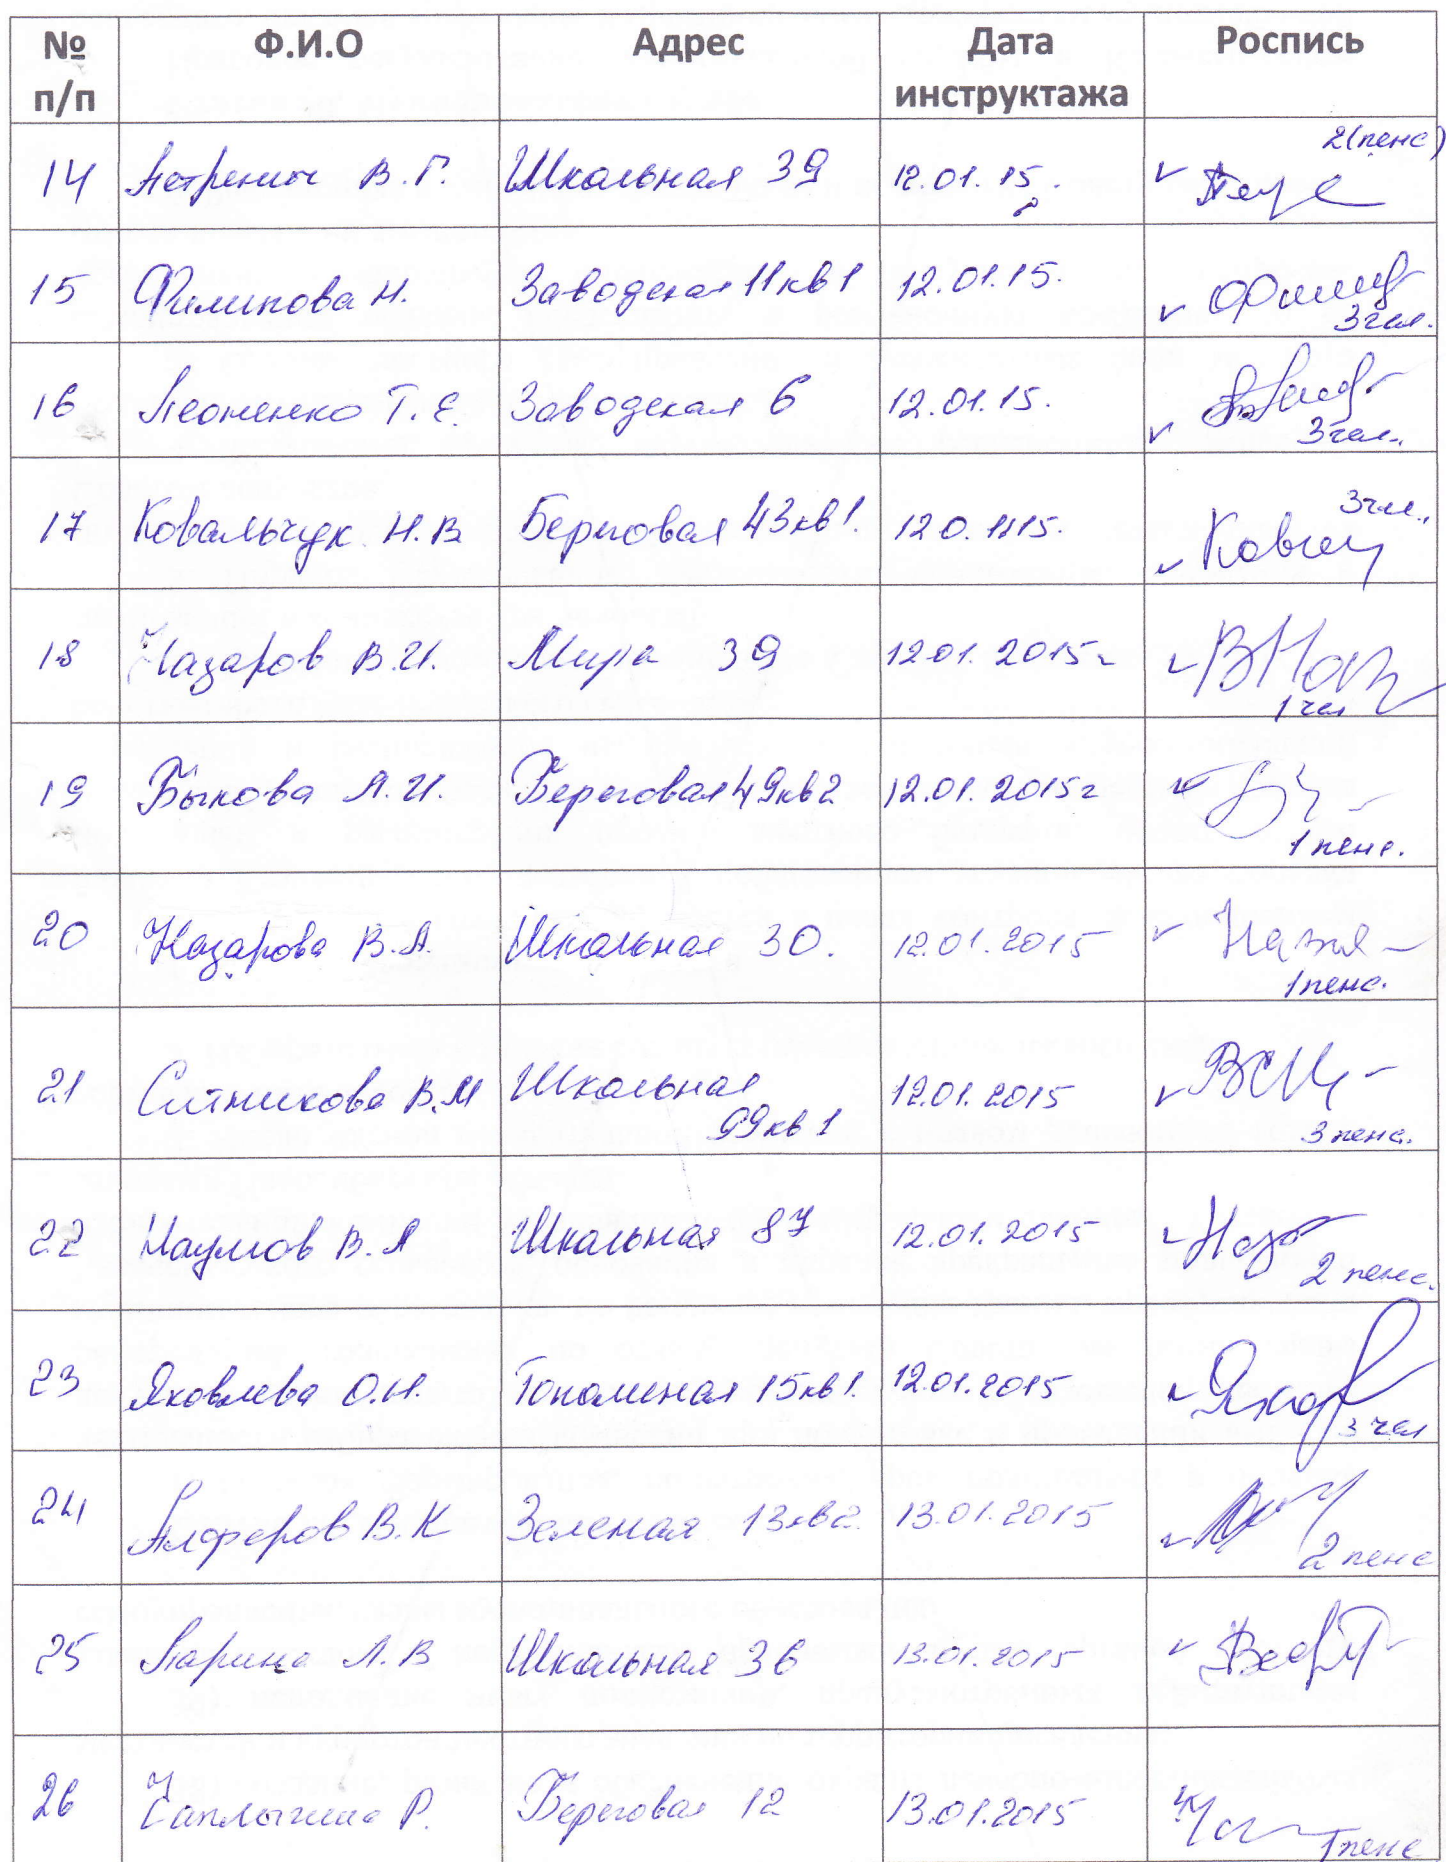 № п/п Ф.И.О Адрес Дата инструктажа Роспись
2(пенс)
14 В.Г. Школьная 39 12.01.15.
15 Филипова Н. Заводская 11кв1 12.01.15.
3чел.
16 Леоненко Т.Е. Заводская 6 12.01.15.
3чел.
3чел.
17 Ковальчук Н.В Береговая 43кв1. 120.1115.
18 Назаров В.И. Мира 39 12.01.2015г
1чел
19 Быкова Л.И. Береговая 49кв2 12.01.2015г
1пенс.
20 Назарова В.А. Школьная 30. 12.01.2015
1пенс.
21 Ситникова В.М Школьная 12.01.2015
99кв1
3пенс.
22 Наумов В.А Школьная 87 12.01.2015
2 пенс.
23 Яковлева О.Н. Тополиная 15кв1. 12.01.2015
3 чел
24 Алферов В.К Зеленая 13кв2. 13.01.2015
2 пенс
25 Ларина Л.В Школьная 36 13.01.2015
26 Чаплыгина Р. Береговая 12 13.01.2015
1пенс